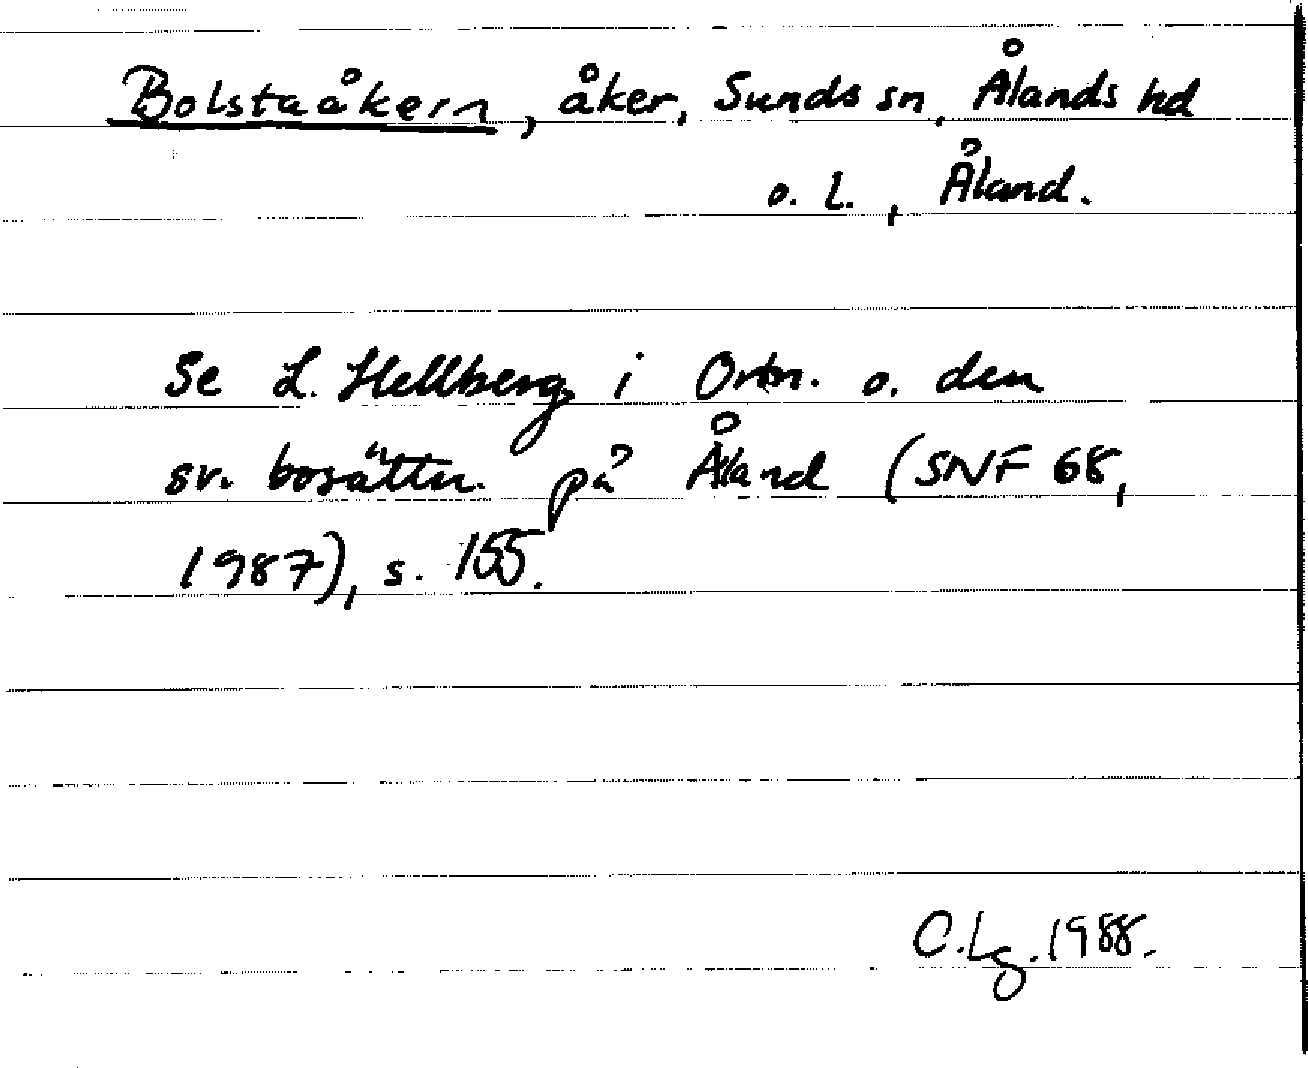 Bolstaåkern, åker, Sunds sn, Ålands hd
o. l., Åland.
Se L. Hellberg i Ortn. o. den
sv. bosättn. på Åland (SNF 68,
1987), s. 155.
C. Lg. 1988.